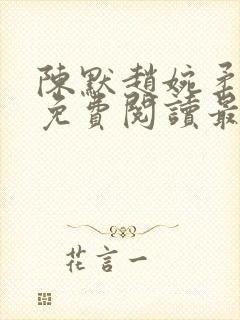 陳默趙婉柔
免費閱讀最
花言一